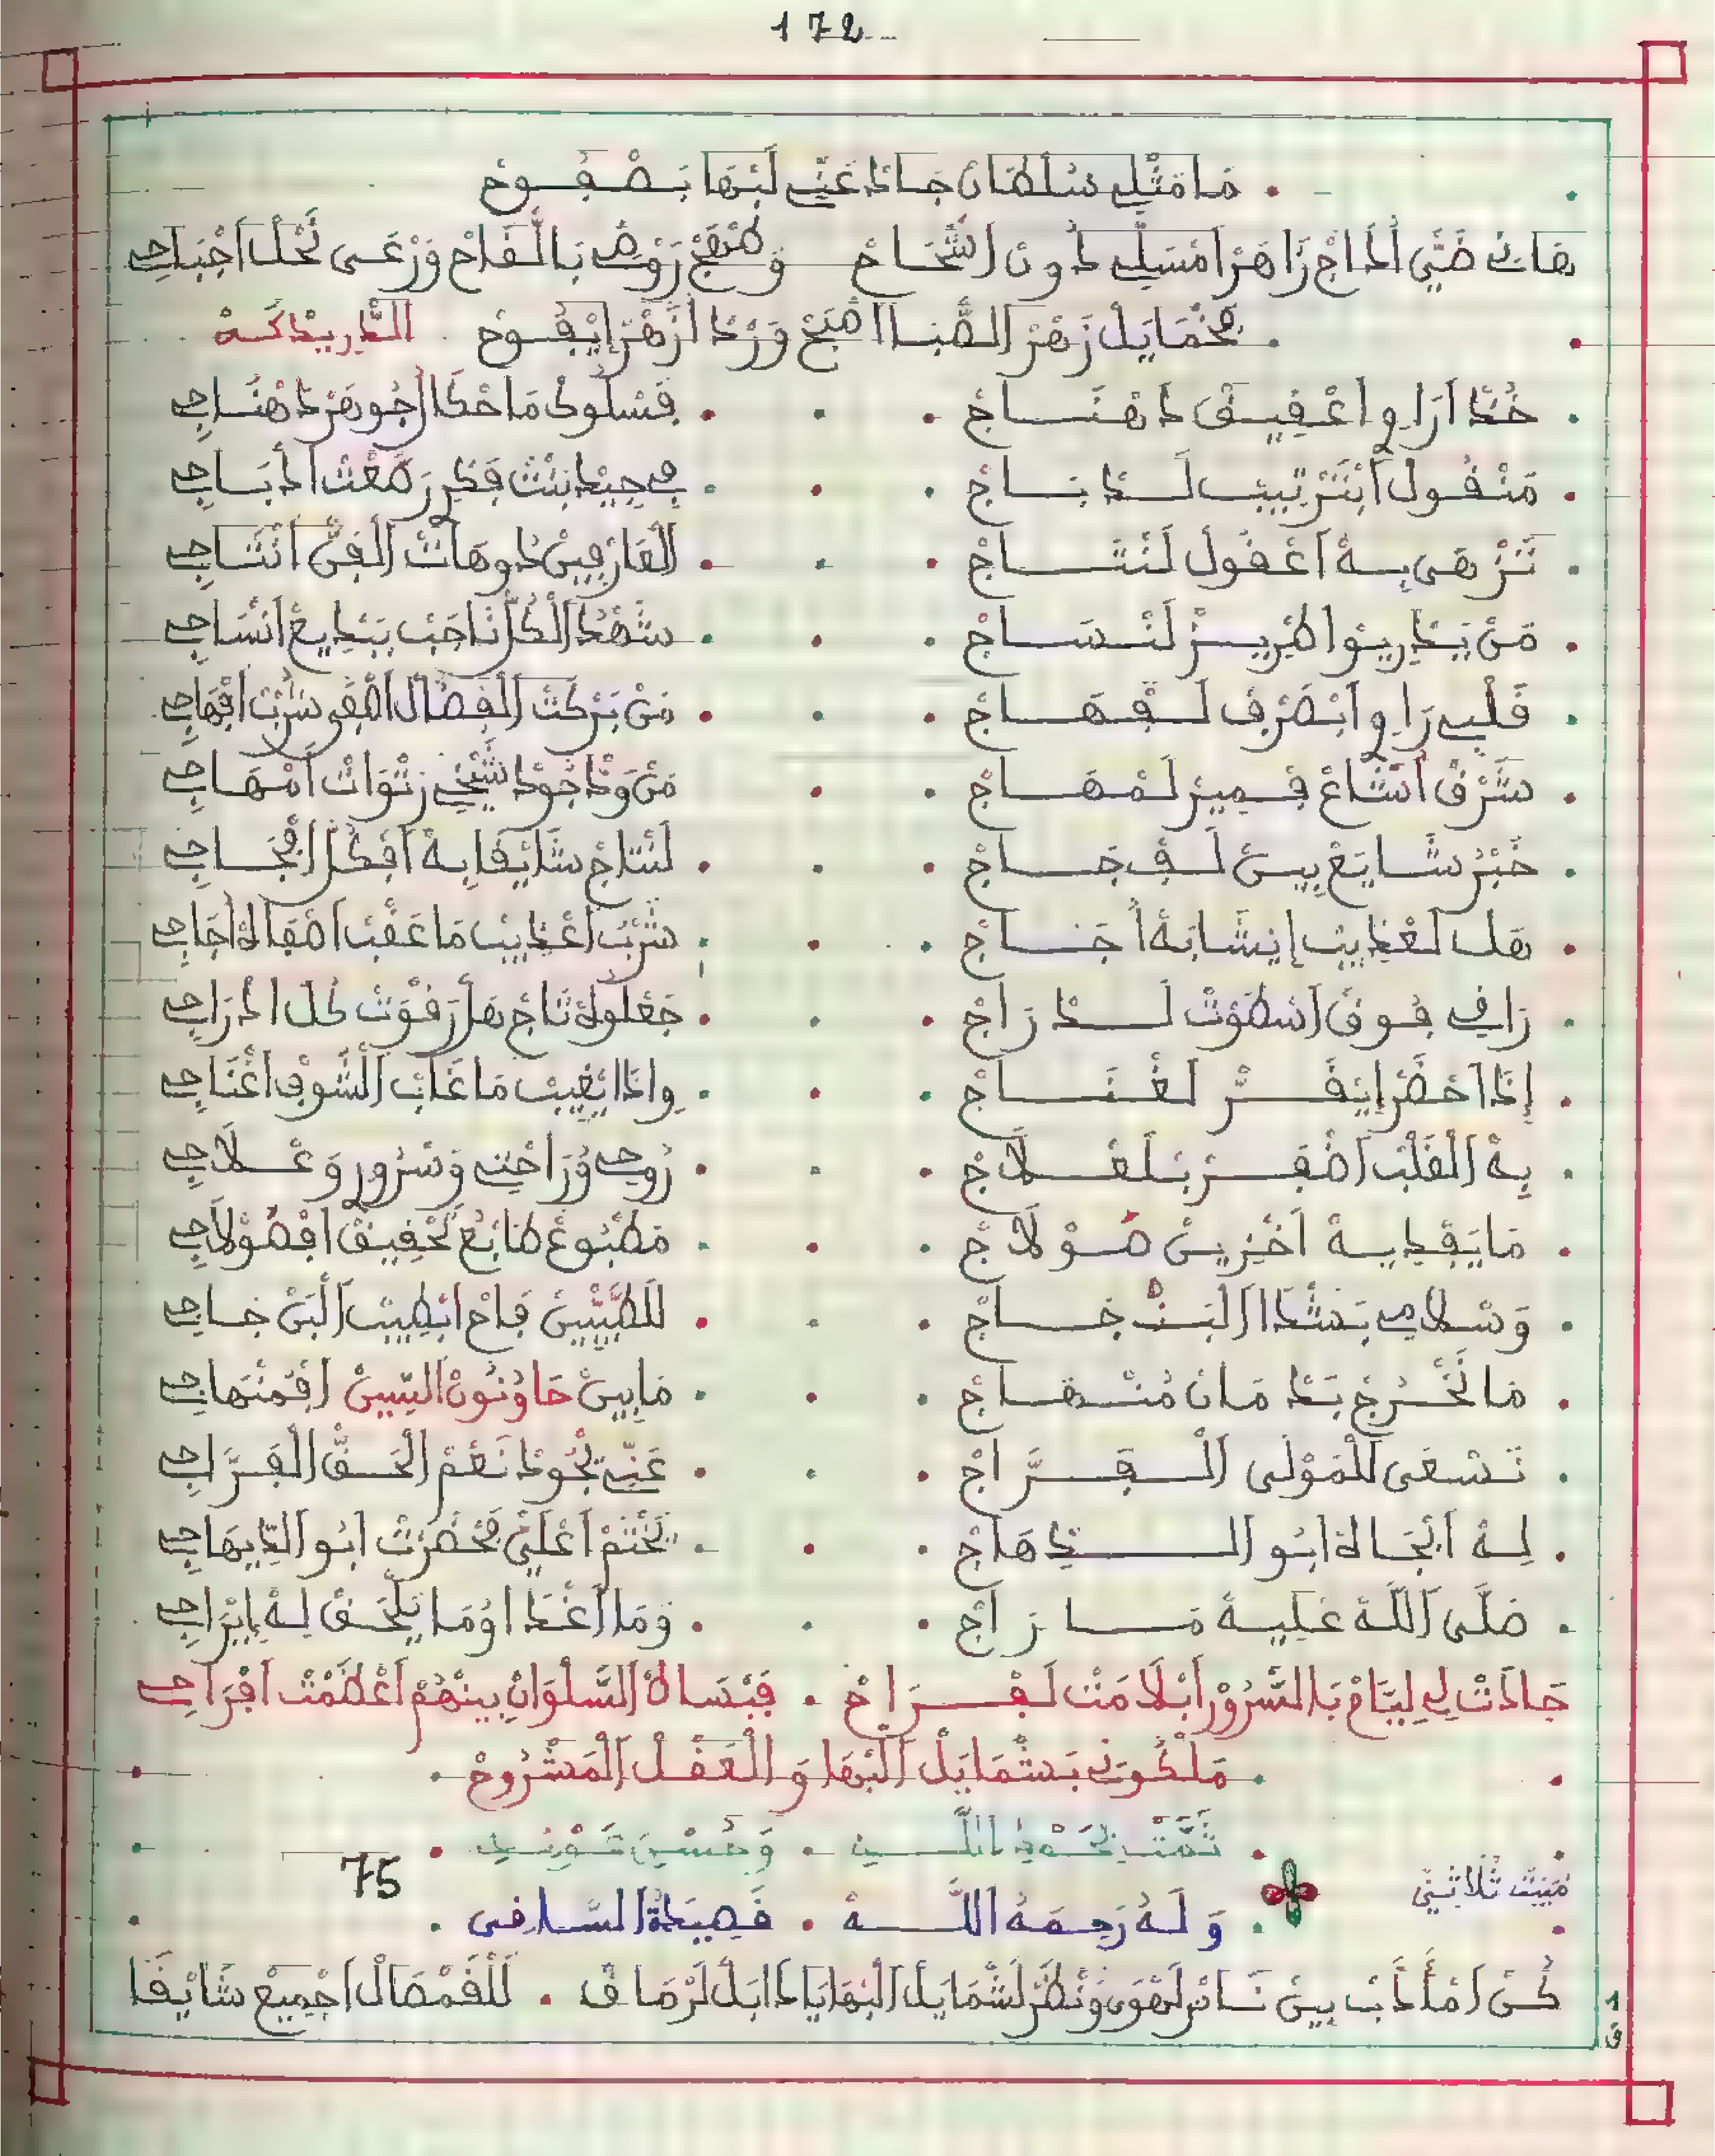 172
مَا مَثْلِي سُلْطَانْ جَادْ عَنِّي لَبْهَا بَصْفُوحْ
هَانِي ضَيّ الدَّاجْ زَاهَرْ امْسَلِّي دُونْ اشْحَاحْ وَمْهَجْ رَوْضِي بَاللّقَاحْ وَرْعَى نَحْلْ اجْبَاحِي
بَخْمَايَلْ زَهْرْ الصّْبَا امْبَحْ وَرْدْ الزّْهَرْ ايْفُوحْ الدْرِيدْكَة
خُدْ ارَاوِي اعْقِيقْ دَهْنَاجْ
فَسْلُوكْ مَا حْكَا الجُوهَرْ دَهْنَاجِي
مَنْقُولْ ابْتَرْتِيبْ لَدْبَاجْ
فِي جِيدْ بَنْتْ فَكْرِي رَصْعَتْ ادْبَاجِي
تَزْهَى بِهْ اعْقُولْ لَنْتَاجْ
العَارْفِينْ دُوهَاتْ الفَنّْ انْتَاجِي
مَنْ يَدْرِيوْا اطْرِيزْ لَنْسَاجْ
شَهْدْ الكُلّْ نَاجَبْ بَبْدِيعْ انْسَاجِي
قَلْبِي رَاوِي ابْصَرْفْ لَفْهَاجْ
مَنْ بَرْكَتْ الفْضَالْ اصْفَى شَرْبْ افْهَاجِي
شَرْقْ اشْعَاعْ فَمِيرْ لَمْهَاجْ
مَنْ وَدّْ جُودْ شَيْخِي زَتْوَاتْ امْهَاجِي
خَبْرْ شَايَعْ بِينْ لَفْجَاجْ
لَنْتَاجْ شَايْقَا بِهْ افْكُلّْ افْجَاجِي
هَلْ لَعْدِيبْ إيشَابَهْ أجَاجْ
شَرْبْ اعْدِيبْ مَا عَقْبْ اصْفَالُهْ اجَاجِي
رَاقِي فُوقْ اسْطَوْتْ لَدْرَاجْ
جَعْلُولُهْ تَاجْ هَلْ رَقْوَتْ كُلْ ادْرَاجِي
إذَا احْضَرْ إيقَرّْ لَغْنَاجْ
وِاذَا يْغِيبْ مَا غَابْ الشُّوقْ اغْنَاجِي
بِهْ القَلْبْ اضْفَرْ بَلْعْلَاجْ
رُوحِي وُرَاحْتِي وَسْرُورِي وَعْلَاجِي
مَا يَفْدِيهْ اخْزِينْ صَوْلَاجْ
مَطْبُوعْ طَابْعْ تَحْقِيقْ افْصَوْلَاجِي
وَسْلَامِي بَشْدَا البَنْ خَاجْ
للطَّيّْبِينْ فَاحْ ابْطِيبْ البَنْ خَاجِي
مَا نَخْرُجْ بَدْمَانْ مُنْهَاجْ
مَابِينْ حَا وُنُونْ السِّينْ افْمَنْهَاجِي
نَسْعَى لَلْمَوْلَى الْفَرَّاجْ
عَنِّي يْجُودْ نَعْمْ الحَقّْ الفَرَّاجِي
لِهْ الجَالَةْ ابُو الدِّهَاجْ
نَخْتَمْ اعْلَى مَحْضَرْتْ ابُو الدِّيهَاجِي
صَلَّى اللَّهْ عَلِيهْ مَا رَاجْ
وَمَا اغْدَا اوُمَا يَلْحَقْ لِهْ ابْرَاجِي
جَادَتْ لِي لِيَّامْ بَالسُّرُورْ ابْلَا مَنْتْ لَفْرَاحْ فَبْسَاطْ السّلْوَانْ بِينْهُمْ اعْظَمْتْ افْرَاحِي
مَلْكُونِي بَشْمَايَلْ البْهَا وَالْعَقْلْ المَشْرُوحْ
تَمَّتْ بِحَمْدِ اللَّهِ وَحُسْنِ عَوْنِهِ
75
مبيت ثلاثي
وَلَهُ رَحِمَهُ اللَّهْ قَصِيدَةُ السَّاقِي
كُنْ امْأَدَّبْ بِينْ نَاسْ لَهْوَى وَنْظَرْ لَشْمَايَلْ البْهَا يَا دَابَلْ لَرْمَاقْ لَلْقَمْصَالْ اجْمِيعْ شَايْقَا
1
ق